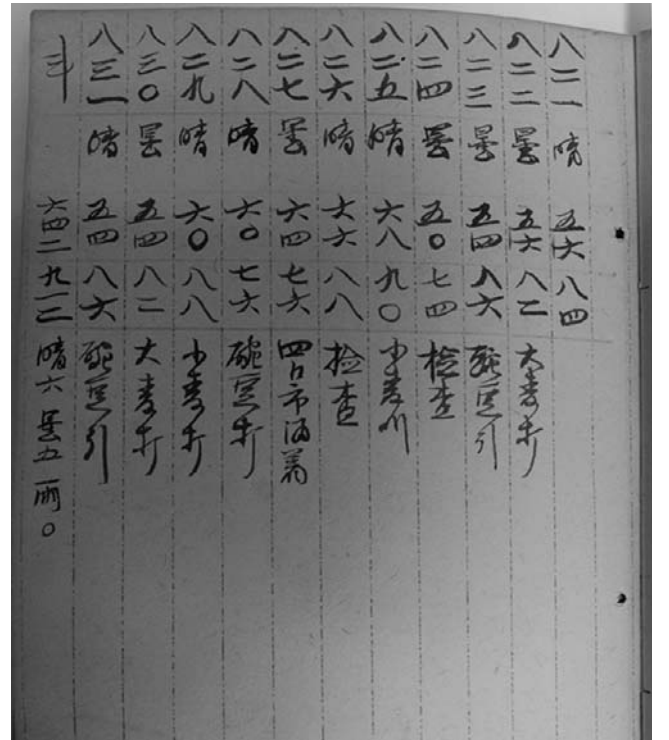 八二一 晴 五六 八四
八二二 曇 五六 八二 大麦打
八二三 曇 五四 八六 豌豆引
八二四 曇 五〇 七四 検査
八二五 晴 六八 九〇 小麦刈
八二六 晴 六六 八八 検査
八二七 曇 六四 七六 四日市
八二八 晴 六〇 七六 豌豆打
八二九 晴 六〇 八八 小麦打
八三〇 曇 五四 八二 大麦打
八三一 晴 五四 八六 豌豆引
計 六四二 九一二 晴六 曇五 雨〇